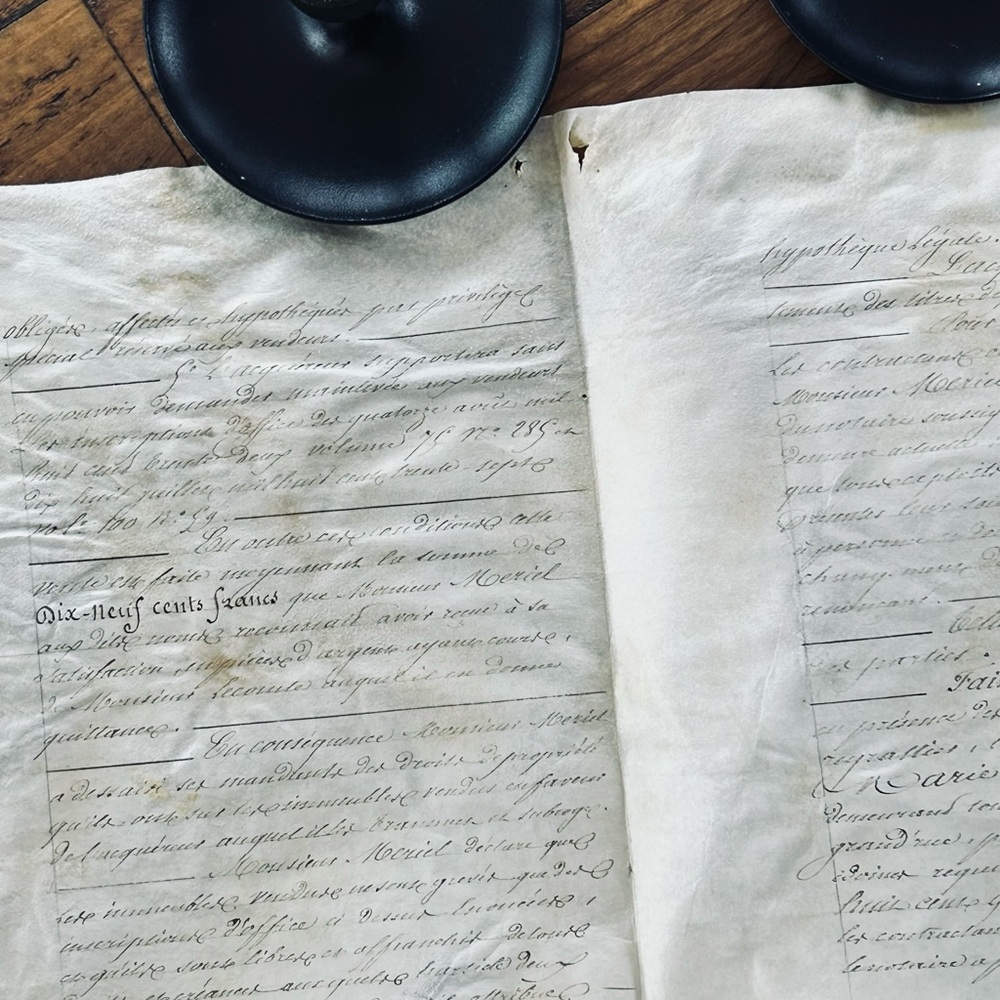 obligés, affectés et hypothéqués par privilège
spécial réservé aux vendeurs.
5º L'acquéreur supportera sans
en pouvoir demander mainlevée aux vendeurs
les inscriptions d'office des quatorze août mil
huit cent trente deux volume 75 Nº 285 et
dix huit juillet mil huit cent trente-sept
vol. 100 Nº 59.
En outre ces conditions cette
vente est faite moyennant la somme de
Dix-neuf cents francs que Monsieur Meriel
aux dits noms reconnaît avoir reçue à sa
satisfaction en pièces d'argent ayant cours,
de Monsieur Lecomte auquel il en donne
quittance.
En conséquence Monsieur Meriel
a dessaisi ses mandants des droits de propriété
qu'ils ont sur les immeubles vendus en faveur
de l'acquéreur auquel il les transmet et subroge.
Monsieur Meriel déclare que
les immeubles vendus ne sont grevés que des
inscriptions d'office ci dessus énoncées,
et qu'ils sont libres et affranchis de toutes
créances auxquelles l'article deux
attribue
hypothèque légale.
L'ac
des titres de
Pour
Les contractants
Monsieur Meriel
du notaire soussig
demeure actuel
que tous exploits
à personne
changement de
Telle
les parties.
Fait
en présence des
Marie
demeurant tou
grand'rue
témoins requi
huit cent q
les contractan
le notaire a